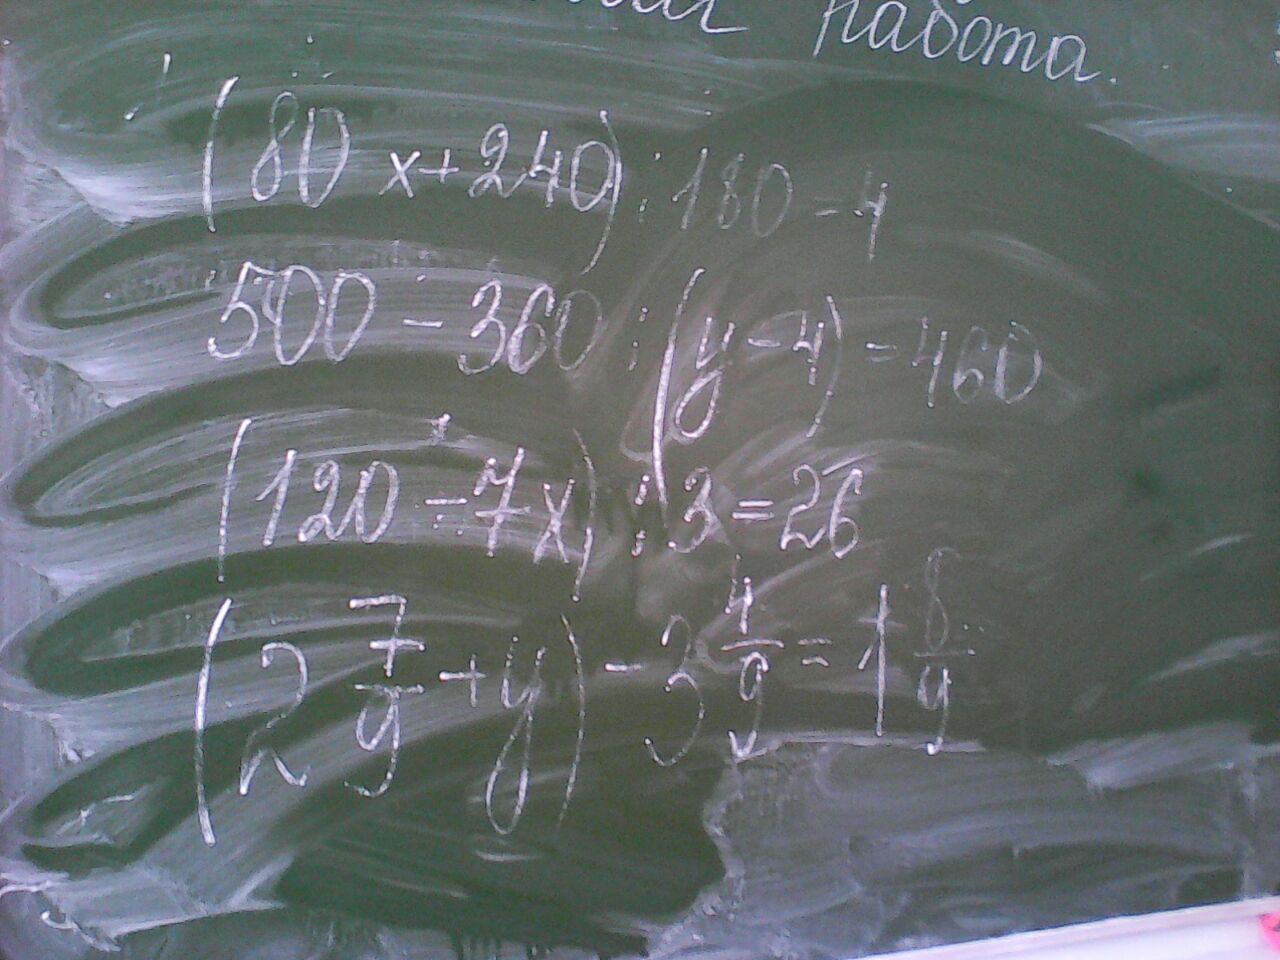 работа.
(80x+240):180=4
500-360:(y-4)=460
(120-7x):3=26
(2 7/9+y)-3 4/9=1 8/9